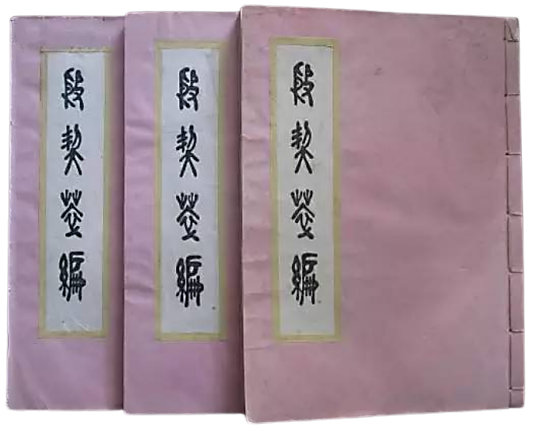 殷契萃編
殷契萃編
殷契萃編